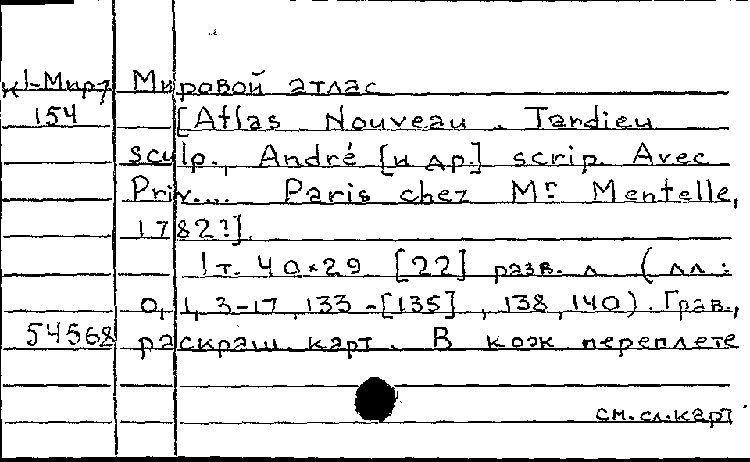 К1-Мир7 Мировой атлас
154 [Atlas Nouveau. Tardieu
sculp., André [и др.] scrip. Avec
Priv... Paris chez Mr Mentelle,
1782?].
1 т. 40×29 [22] разв. л. (лл:
0, 1, 3-17, 133-[135], 138, 140). Грав.,
54568 раскраш. карт. В кож переплете
см.сл.карт